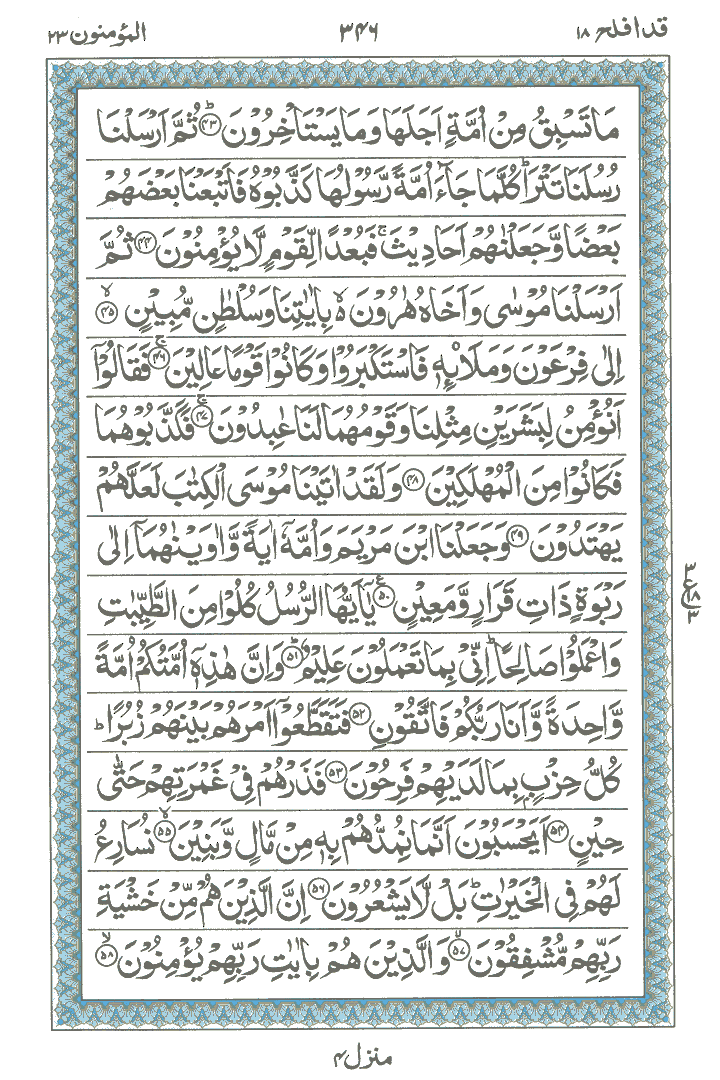 قد افلح ۱۸
۳۴۶
المؤمنون ۲۳
مَا تَسْبِقُ مِنْ اُمَّةٍ اَجَلَهَا وَمَا يَسْتَاْخِرُوْنَ ؕ﴿۴۳﴾ ثُمَّ اَرْسَلْنَا
رُسُلَنَا تَتْرَا ؕ كُلَّمَا جَآءَ اُمَّةً رَّسُوْلُهَا كَذَّبُوْهُ فَاَتْبَعْنَا بَعْضَهُمْ
بَعْضًا وَّجَعَلْنٰهُمْ اَحَادِيْثَ ۚ فَبُعْدًا لِّقَوْمٍ لَّا يُؤْمِنُوْنَ ﴿۴۴﴾ ثُمَّ
اَرْسَلْنَا مُوْسٰى وَاَخَاهُ هٰرُوْنَ ۙ۬ بِاٰيٰتِنَا وَسُلْطٰنٍ مُّبِيْنٍ ۙ﴿۴۵﴾
اِلٰى فِرْعَوْنَ وَمَلَا۟ئِهٖ فَاسْتَكْبَرُوْا وَكَانُوْا قَوْمًا عَالِيْنَ ۚ﴿۴۶﴾ فَقَالُوْۤا
اَنُؤْمِنُ لِبَشَرَيْنِ مِثْلِنَا وَقَوْمُهُمَا لَنَا عٰبِدُوْنَ ۚ﴿۴۷﴾ فَكَذَّبُوْهُمَا
فَكَانُوْا مِنَ الْمُهْلَكِيْنَ ﴿۴۸﴾ وَلَقَدْ اٰتَيْنَا مُوْسَى الْكِتٰبَ لَعَلَّهُمْ
يَهْتَدُوْنَ ﴿۴۹﴾ وَجَعَلْنَا ابْنَ مَرْيَمَ وَاُمَّهٗۤ اٰيَةً وَّاٰوَيْنٰهُمَاۤ اِلٰى
رَبْوَةٍ ذَاتِ قَرَارٍ وَّمَعِيْنٍ ﴿۵۰﴾ يٰۤاَيُّهَا الرُّسُلُ كُلُوْا مِنَ الطَّيِّبٰتِ
وَاعْمَلُوْا صَالِحًا ؕ اِنِّىْ بِمَا تَعْمَلُوْنَ عَلِيْمٌ ؕ﴿۵۱﴾ وَاِنَّ هٰذِهٖۤ اُمَّتُكُمْ اُمَّةً
وَّاحِدَةً وَّاَنَا رَبُّكُمْ فَاتَّقُوْنِ ﴿۵۲﴾ فَتَقَطَّعُوْۤا اَمْرَهُمْ بَيْنَهُمْ زُبُرًا ؕ
كُلُّ حِزْبٍۭ بِمَا لَدَيْهِمْ فَرِحُوْنَ ﴿۵۳﴾ فَذَرْهُمْ فِىْ غَمْرَتِهِمْ حَتّٰى
حِيْنٍ ﴿۵۴﴾ اَيَحْسَبُوْنَ اَنَّمَا نُمِدُّهُمْ بِهٖ مِنْ مَّالٍ وَّبَنِيْنَ ۙ﴿۵۵﴾ نُسَارِعُ
لَهُمْ فِى الْخَيْرٰتِ ؕ بَلْ لَّا يَشْعُرُوْنَ ﴿۵۶﴾ اِنَّ الَّذِيْنَ هُمْ مِّنْ خَشْيَةِ
رَبِّهِمْ مُّشْفِقُوْنَ ۙ﴿۵۷﴾ وَالَّذِيْنَ هُمْ بِاٰيٰتِ رَبِّهِمْ يُؤْمِنُوْنَ ۙ﴿۵۸﴾
منزل ۴